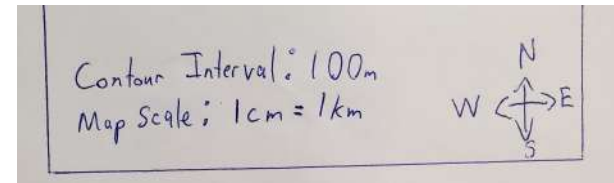 Contour Interval: 100m
Map Scale: 1cm = 1km
N
W E
S